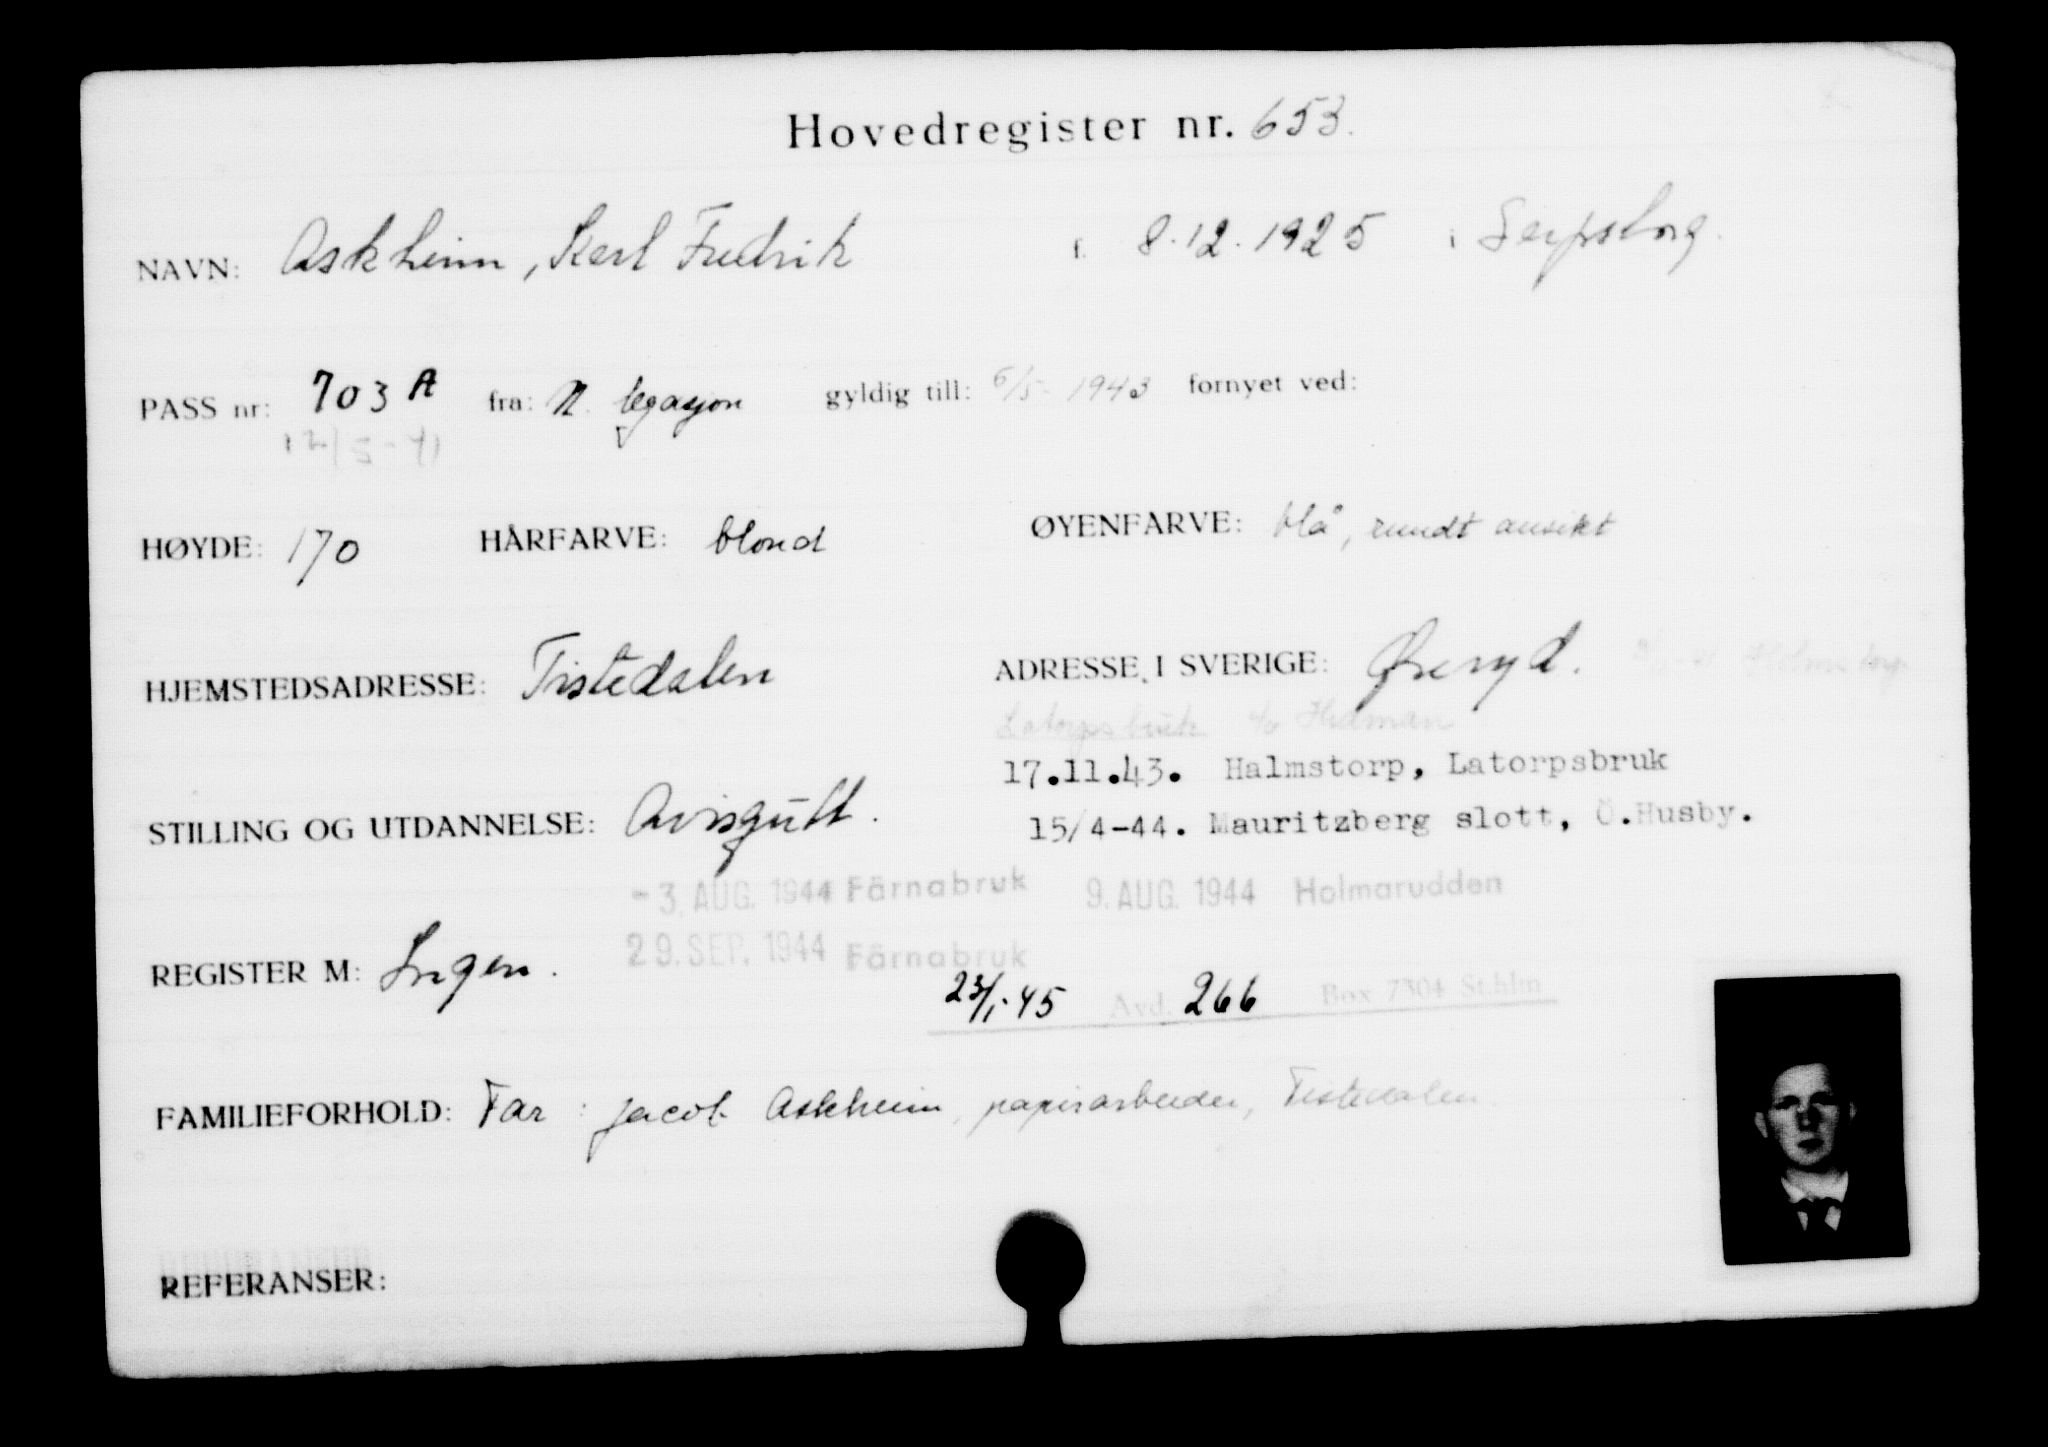 Hovedregister nr. 653.
NAVN: Askheim, Karl Fredrik f. 8.12.1925 i Sarpsborg.
PASS nr: 703 A fra: N. legasjon gyldig till: 6/5- 1943 fornyet ved:
12/5-41
HØYDE: 170 HÅRFARVE: blond ØYENFARVE: blå, rundt ansikt
HJEMSTEDSADRESSE: Tistedalen ADRESSE I SVERIGE: Øreryd.
Latorpsbruk c/o Hedman
17.11.43. Halmstorp, Latorpsbruk
STILLING OG UTDANNELSE: Avisgutt. 15/4-44. Mauritzberg slott, Ö.Husby.
-3. AUG. 1944 Färnabruk 9. AUG. 1944 Holmarudden
29. SEP. 1944 Färnabruk
REGISTER M: Ingen.
23/1-45 Avd. 266 Box 7304 St.hlm
FAMILIEFORHOLD: Far: Jacob Askheim, papirarbeider, Tistedalen
REFERANSER: